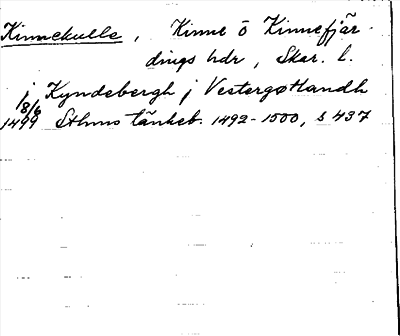 Kinnekulle, Kinne ö Kinnefjär-
dings hdr, Skar. l.
j Kyndebergh j Vestergøtlandh
18/6
1499 Sthms tänkeb. 1492-1500, s 437